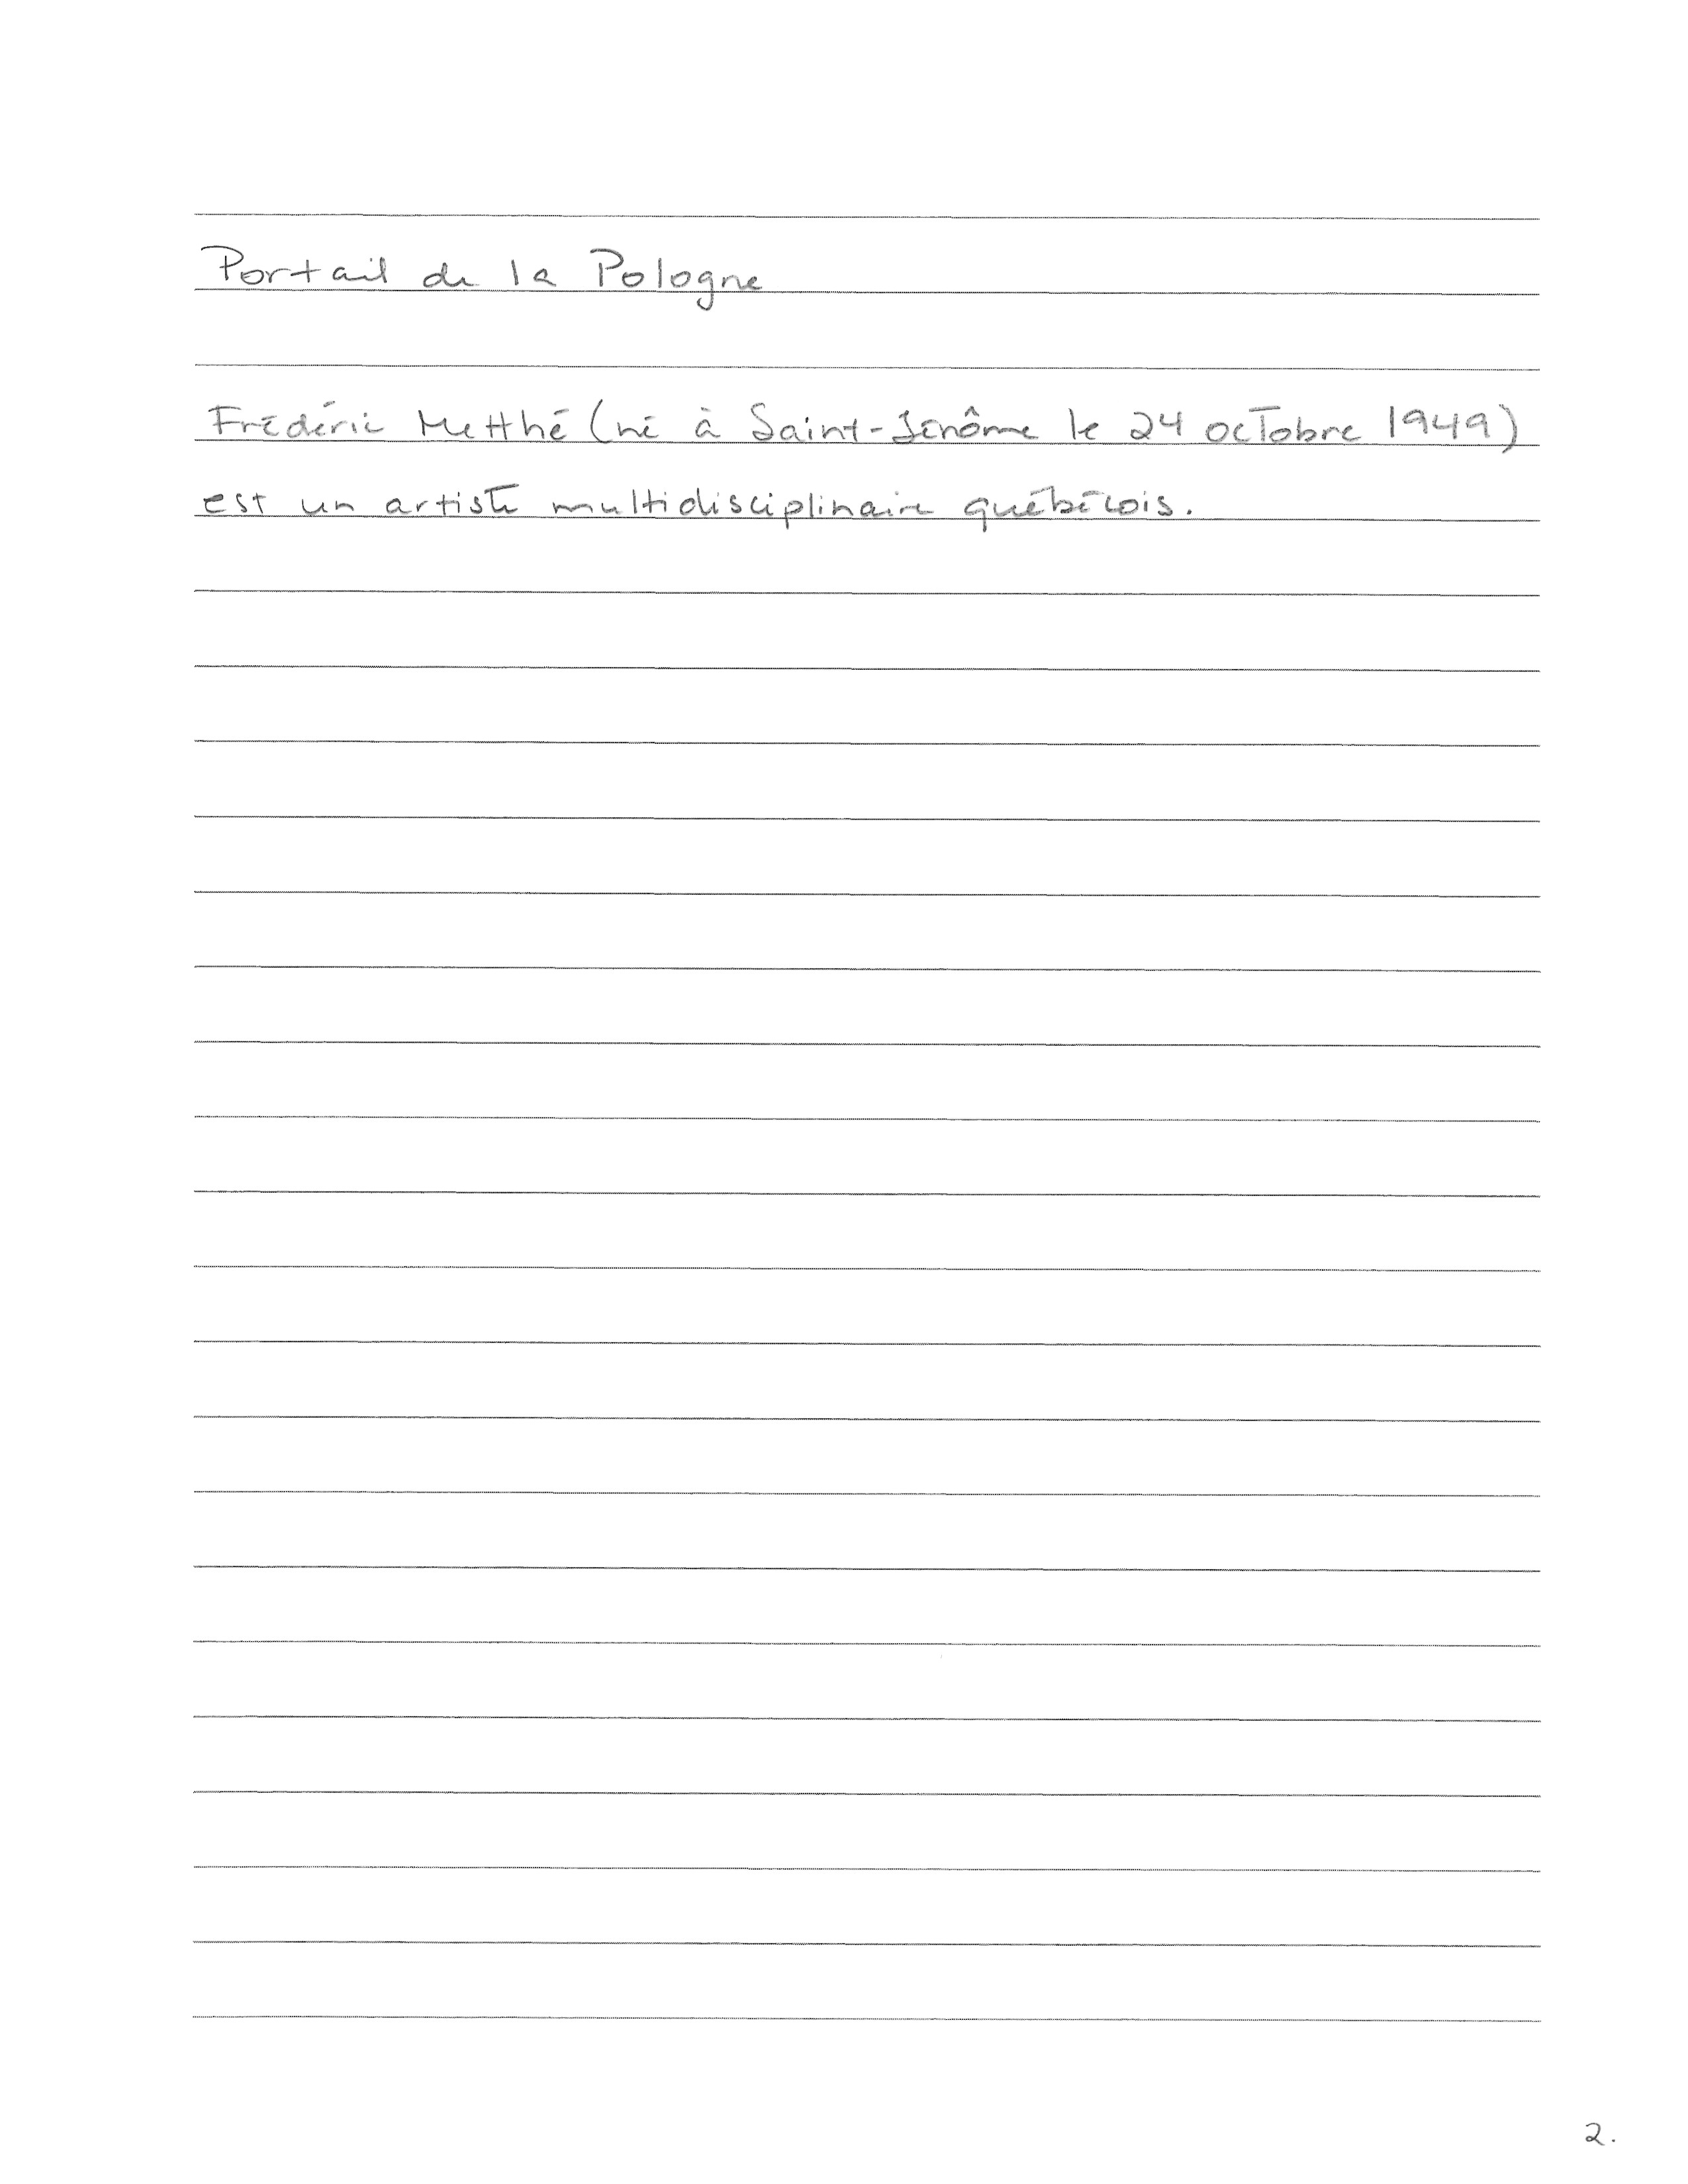 Portail de la Pologne
Frédéric Metthé (né à Saint-Jérôme le 24 octobre 1949)
est un artiste multidisciplinaire québécois.
2.